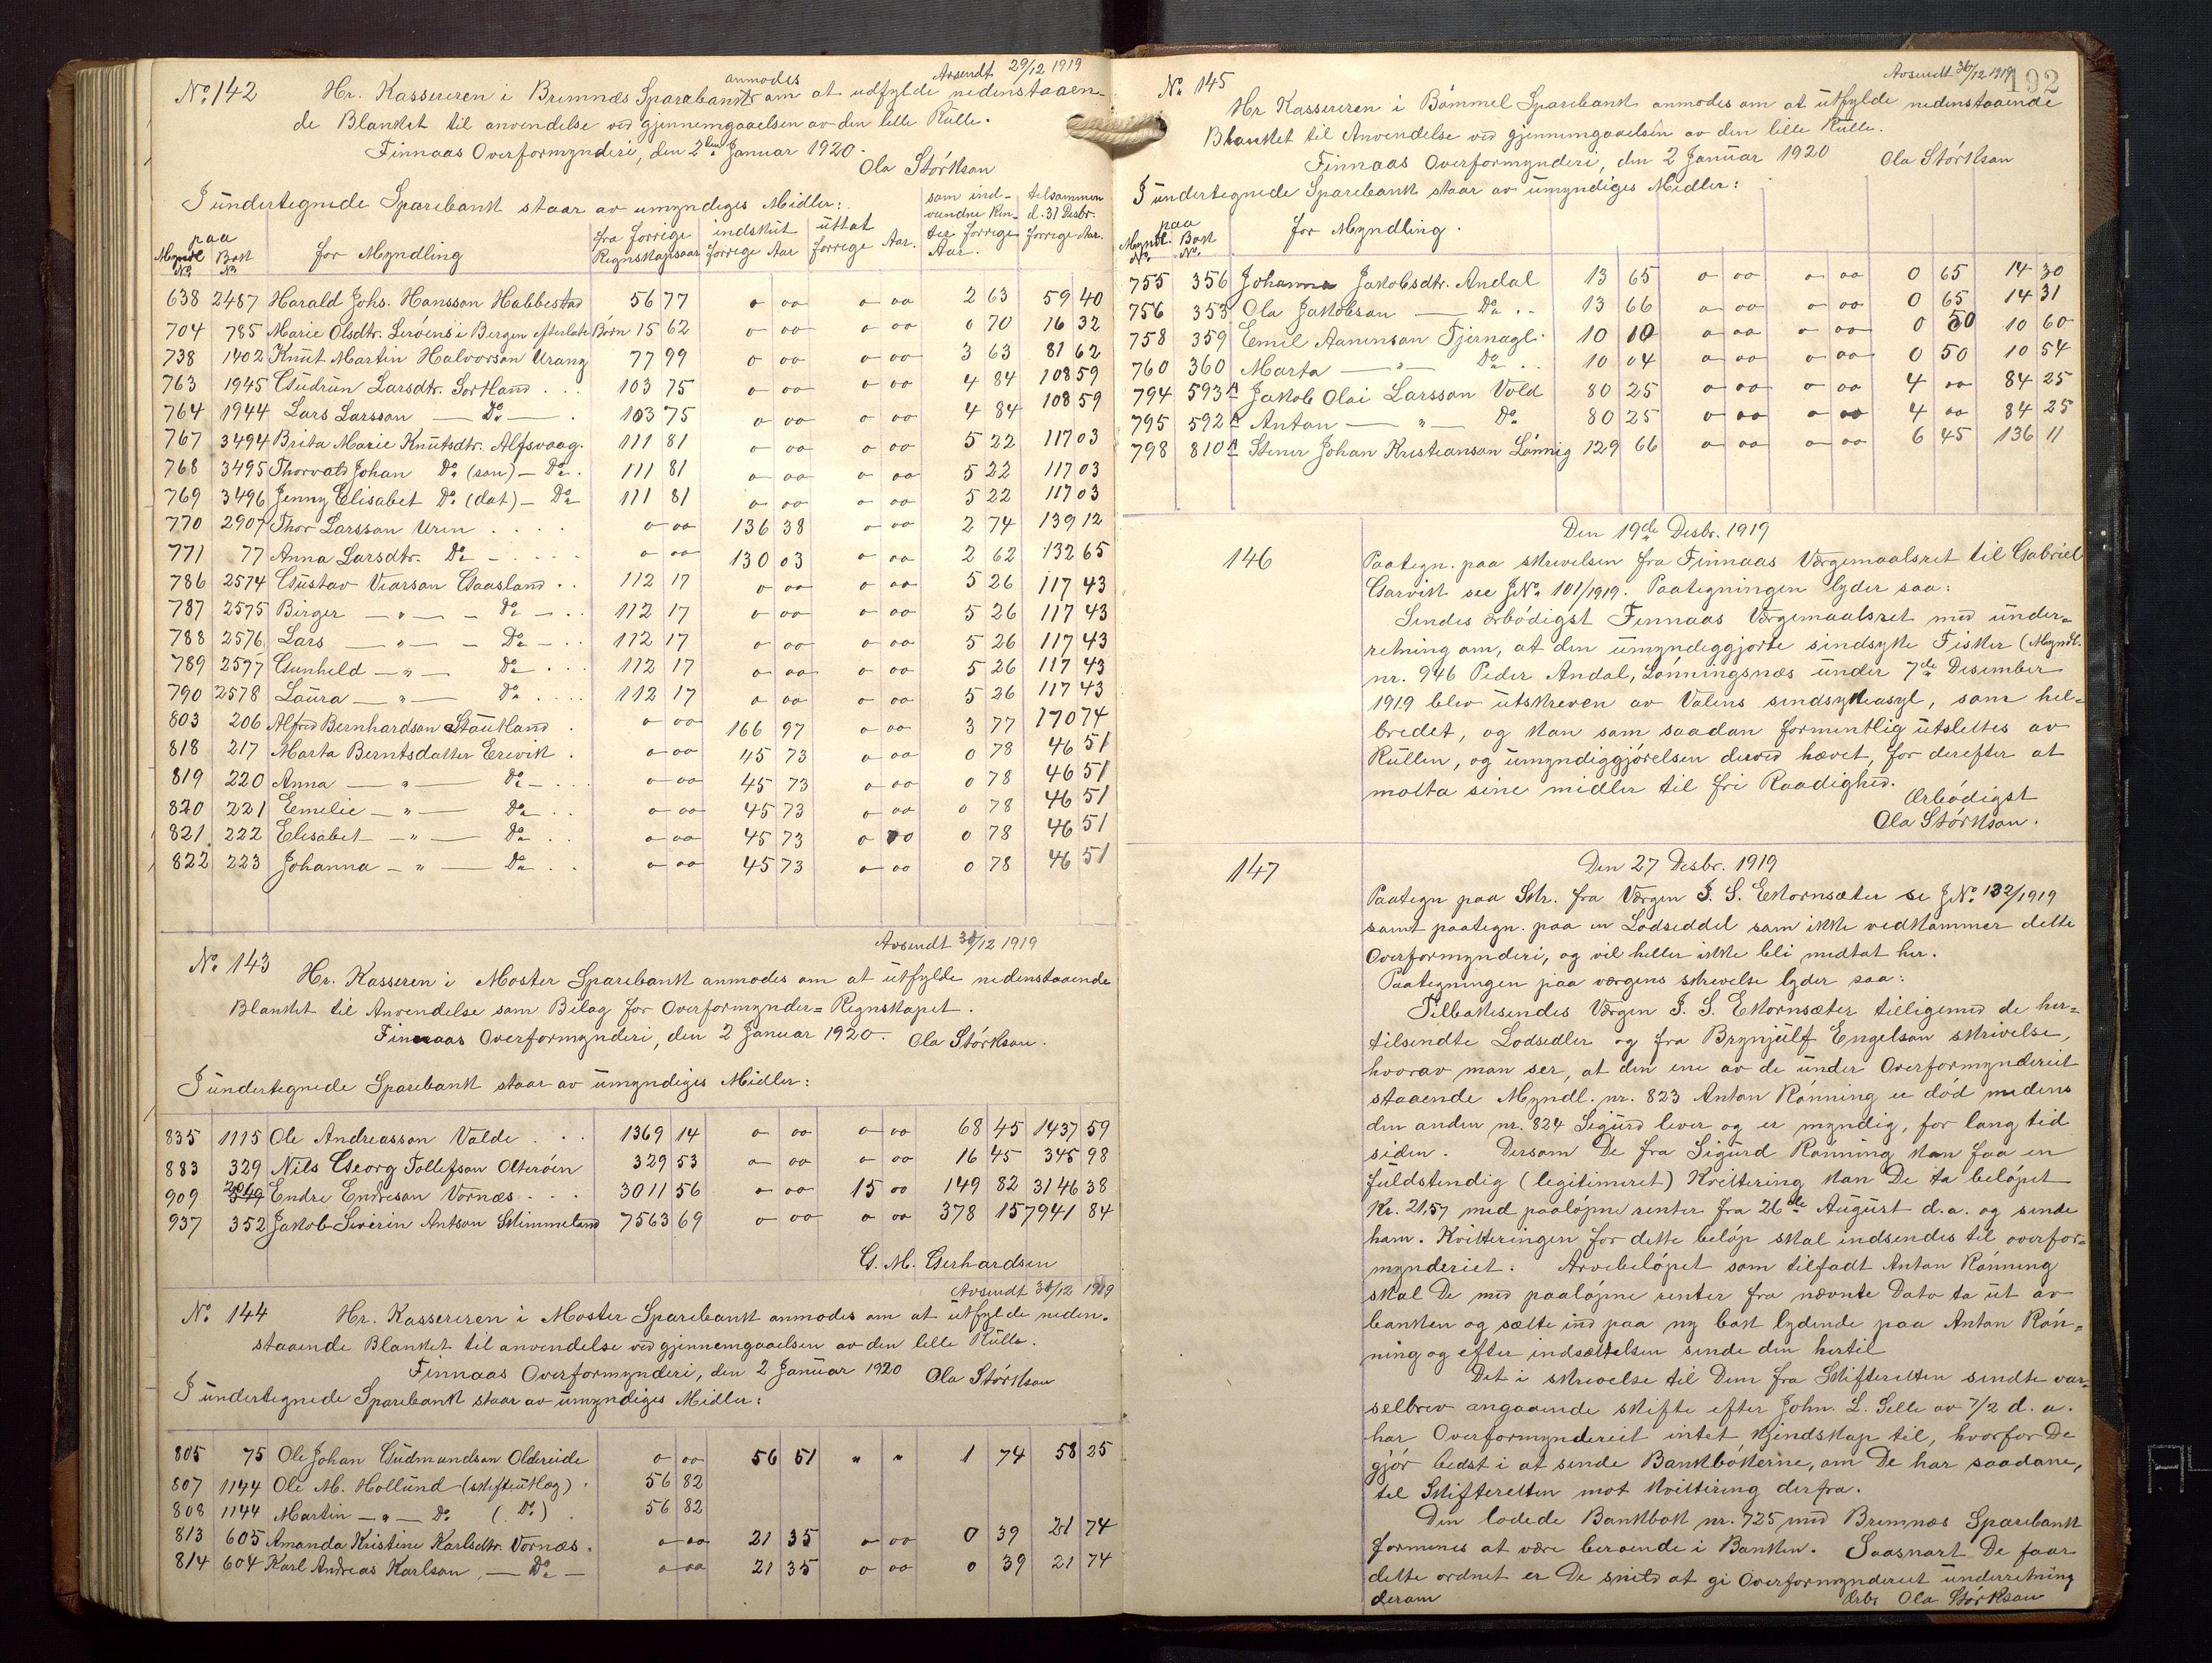 Avsendt 29/12 1919
No. 142 Hr. Kassereren i Bremnæs Sparebank anmodes om at udfylde nedenstaaen-
de Blanket til anvendelse ved gjennemgaaelsen av den lille Rulle.
Finnaas Overformynderi, den 2den Januar 1920.
Ola Størkson
I undertegnede Sparebank staar av umyndiges Midler:
paa
Myndl No. Bok No. for Myndling fra forrige Regnskapsaar indskut forrige Aar uttat forrige Aar. som ind- vundne Ren- ter forrige Aar. tilsammen d. 31 Desbr. forrige Aar.
638 2487 Harald Johs. Hansson Habbestad 56 77 o oo o oo 2 63 59 40
704 785 Marie Olsdtr. Lerøens i Bergen efterlate Børn 15 62 o oo o oo 0 70 16 32
738 1402 Knut Martin Halvorson Urang 77 99 o oo o oo 3 63 81 62
763 1945 Gudrun Larsdtr. Sortland . . . 103 75 o oo o oo 4 84 108 59
764 1944 Lars Larsson — Do — . 103 75 o oo o oo 4 84 108 59
767 3494 Brita Marie Knutsdtr. Alfsvaag. 111 81 o oo o oo 5 22 117 03
768 3495 Thorvald Johan Do (søn) — Do . 111 81 o oo o oo 5 22 117 03
769 3496 Jenny Elisabet Do (dat) — Do 111 81 o oo o oo 5 22 117 03
770 2907 Thor Larsson Uren . . . . o oo 136 38 o oo 2 74 139 12
771 77 Anna Larsdtr. Do — . . . . o oo 130 03 o oo 2 62 132 65
786 2574 Gustav Viarson Gaasland . . 112 17 o oo o oo 5 26 117 43
787 2575 Birger — " — Do — . . 112 17 o oo o oo 5 26 117 43
788 2576 Lars — " — Do — . . 112 17 o oo o oo 5 26 117 43
789 2577 Gunhild — " — Do . . . 112 17 o oo o oo 5 26 117 43
790 2578 Laura — " — Do . . . . 112 17 o oo o oo 5 26 117 43
803 206 Alfred Bernhardson Stautland . o oo 166 97 o oo 3 77 170 74
818 217 Marta Berntsdatter Erevik . o oo 45 73 o oo 0 78 46 51
819 220 Anna — " — Do — . . . o oo 45 73 o oo 0 78 46 51
820 221 Emelie — " — Do . . o oo 45 73 o oo 0 78 46 51
821 222 Elisabet — " — Do . . o oo 45 73 o oo 0 78 46 51
822 223 Johanna — " — Do . . o oo 45 73 o oo 0 78 46 51
Avsendt 30/12 1919
No. 143 Hr. Kasseren i Moster Sparebank anmodes om at utfylde nedenstaaende
Blanket til Anvendelse som Bilag for Overformynder= Regnskapet.
Finnaas Overformynderi, den 2 Januar 1920. Ola Størkson.
I undertegnede Sparebank staar av umyndiges Midler:
835 1115 Ole Andreasson Valde . . . 1369 14 o oo o oo 68 45 1437 59
883 329 Nils Georg Tollefson Olterøen 329 53 o oo o oo 16 45 345 98
909 Endre Endreson Vornæs . . . 3011 56 o oo 15 oo 149 82 3146 38
937 352 Jakob Severin Antson Skimmeland 7563 69 o oo o oo 378 15 7941 84
G. M. Gerhardsen
Avsendt 30/12 1919
No. 144 Hr. Kassereren i Moster Sparebank anmodes om at utfylde neden-
staaende Blanket til anvendelse ved gjennemgaaelsen av den lille Rulle.
Finnaas Overformynderi, den 2 Januar 1920 Ola Størkson
I undertegnede Sparebank staar av umyndiges Midler:
805 75 Ole Johan Gudmundson Oldereide o oo 56 51 " " 1 74 58 25
807 1144 Ole M. Hollund (skifteutlæg) . 56 82
808 1144 Martin — " — Do ( Do ) . 56 82
813 605 Amanda Kristine Karlsdtr. Vornæs . o oo 21 35 o oo 0 39 21 74
814 604 Karl Andreas Karlson — Do — o oo 21 35 o oo 0 39 21 74
Avsendt 30/12 1919 192
No. 145 Hr Kassereren i Bømmel Sparebank anmodes om at utfylde nedenstaaende
Blanket til Anvendelse ved gjennemgaaelsen av den lille Rulle.
Finnaas Overformynderi, den 2 Januar 1920 Ola Størkson
I undertegnede Sparebank staar av umyndiges Midler:
paa
Myndl. No. Bok No. for Myndling.
755 356 Johanna Jakobsdtr. Andal 13 65 o oo o oo 0 65 14 30
756 353 Ola Jakobson — Do . . 13 66 o oo o oo 0 65 14 31
758 359 Emil Aanenson Tjernagl . 10 10 o oo o oo 0 50 10 60
760 360 Marta — " — Do . . 10 04 o oo o oo 0 50 10 54
794 593 A Jakob Olai Larsson Vold 80 25 o oo o oo 4 oo 84 25
795 592 A Anton — " — Do 80 25 o oo o oo 4 oo 84 25
798 810 A Stener Johan Kristianson Lønnig 129 66 o oo o oo 6 45 136 11
Den 19de Desbr. 1919
146 Paategn. paa skrivelsen fra Finnaas Værgemaalsret til Gabriel
Garvik see J.No. 101/1919. Paategningen lyder saa:
Sendes ærbødigst Finnaas Værgemaalsret med under=
retning om, at den umyndiggjorte sindsyke Fisker (Myndl.
nr. 946 Peder Andal, Lønningsnæs under 7de Desember
1919 blev utskreven av Valens sindsykeasyl, som hel=
bredet, og kan som saadan formentlig utslettes av
Rullen, og umyndiggjørelsen derved hævet, for derefter at
motta sine midler til fri Raadighed.
Ærbødigst
Ola Størkson.
Den 27 Desbr. 1919
147 Paategn paa Skr. fra Værgen J. S. Ekornsæter se J.No. 132/1919
samt paategn. paa en Lodseddel som ikke vedkommer dette
Overformynderi, og vil heller ikke bli medtat her.
Paategningen paa værgens skrivelse lyder saa:
Tilbakesendes Værgen J. S. Ekornsæter tilligemed de her=
tilsendte Lodsedler og fra Brynjulf Engelson skrivelse,
hvorav man ser, at den ene av de under Overformynderiet
staaende Myndl. nr. 823 Anton Rønning er død medens
den anden nr. 824 Sigurd lever og er myndig, for lang tid
siden. Dersom De fra Sigurd Rønning kan faa en
fuldstendig (legitimeret) Kvittering kan De ta beløpet
Kr. 21,57 med paaløpne renter fra 26de August d.a. og sende
ham. Kvitteringen for dette beløp skal indsendes til overfor=
mynderiet. Arvebeløpet som tilfaldt Anton Rønning
skal De med paaløpne renter fra nævnte Dato ta ut av
banken og sætte ind paa ny bok lydende paa Anton Røn=
ning og efter indsættelsen sende den hertil
Det i skrivelse til Dem fra Skifteretten sendte var=
selbrev angaaende skifte efter John. L. Selle av 7/2 d. a.
har Overformynderiet intet kjendskap til, hvorfor De
gjør bedst i at sende Bankbøkerne, om De har saadane,
til Skifteretten mot kvittering derfra.
Den lodede Bankbok nr. 725 med Bremnæs Sparebank
formenes at være beroende i Banken. Saasnart De faar
dette ordnet er De snild at gi Overformynderiet underretning
derom Ærb. Ola Størkson